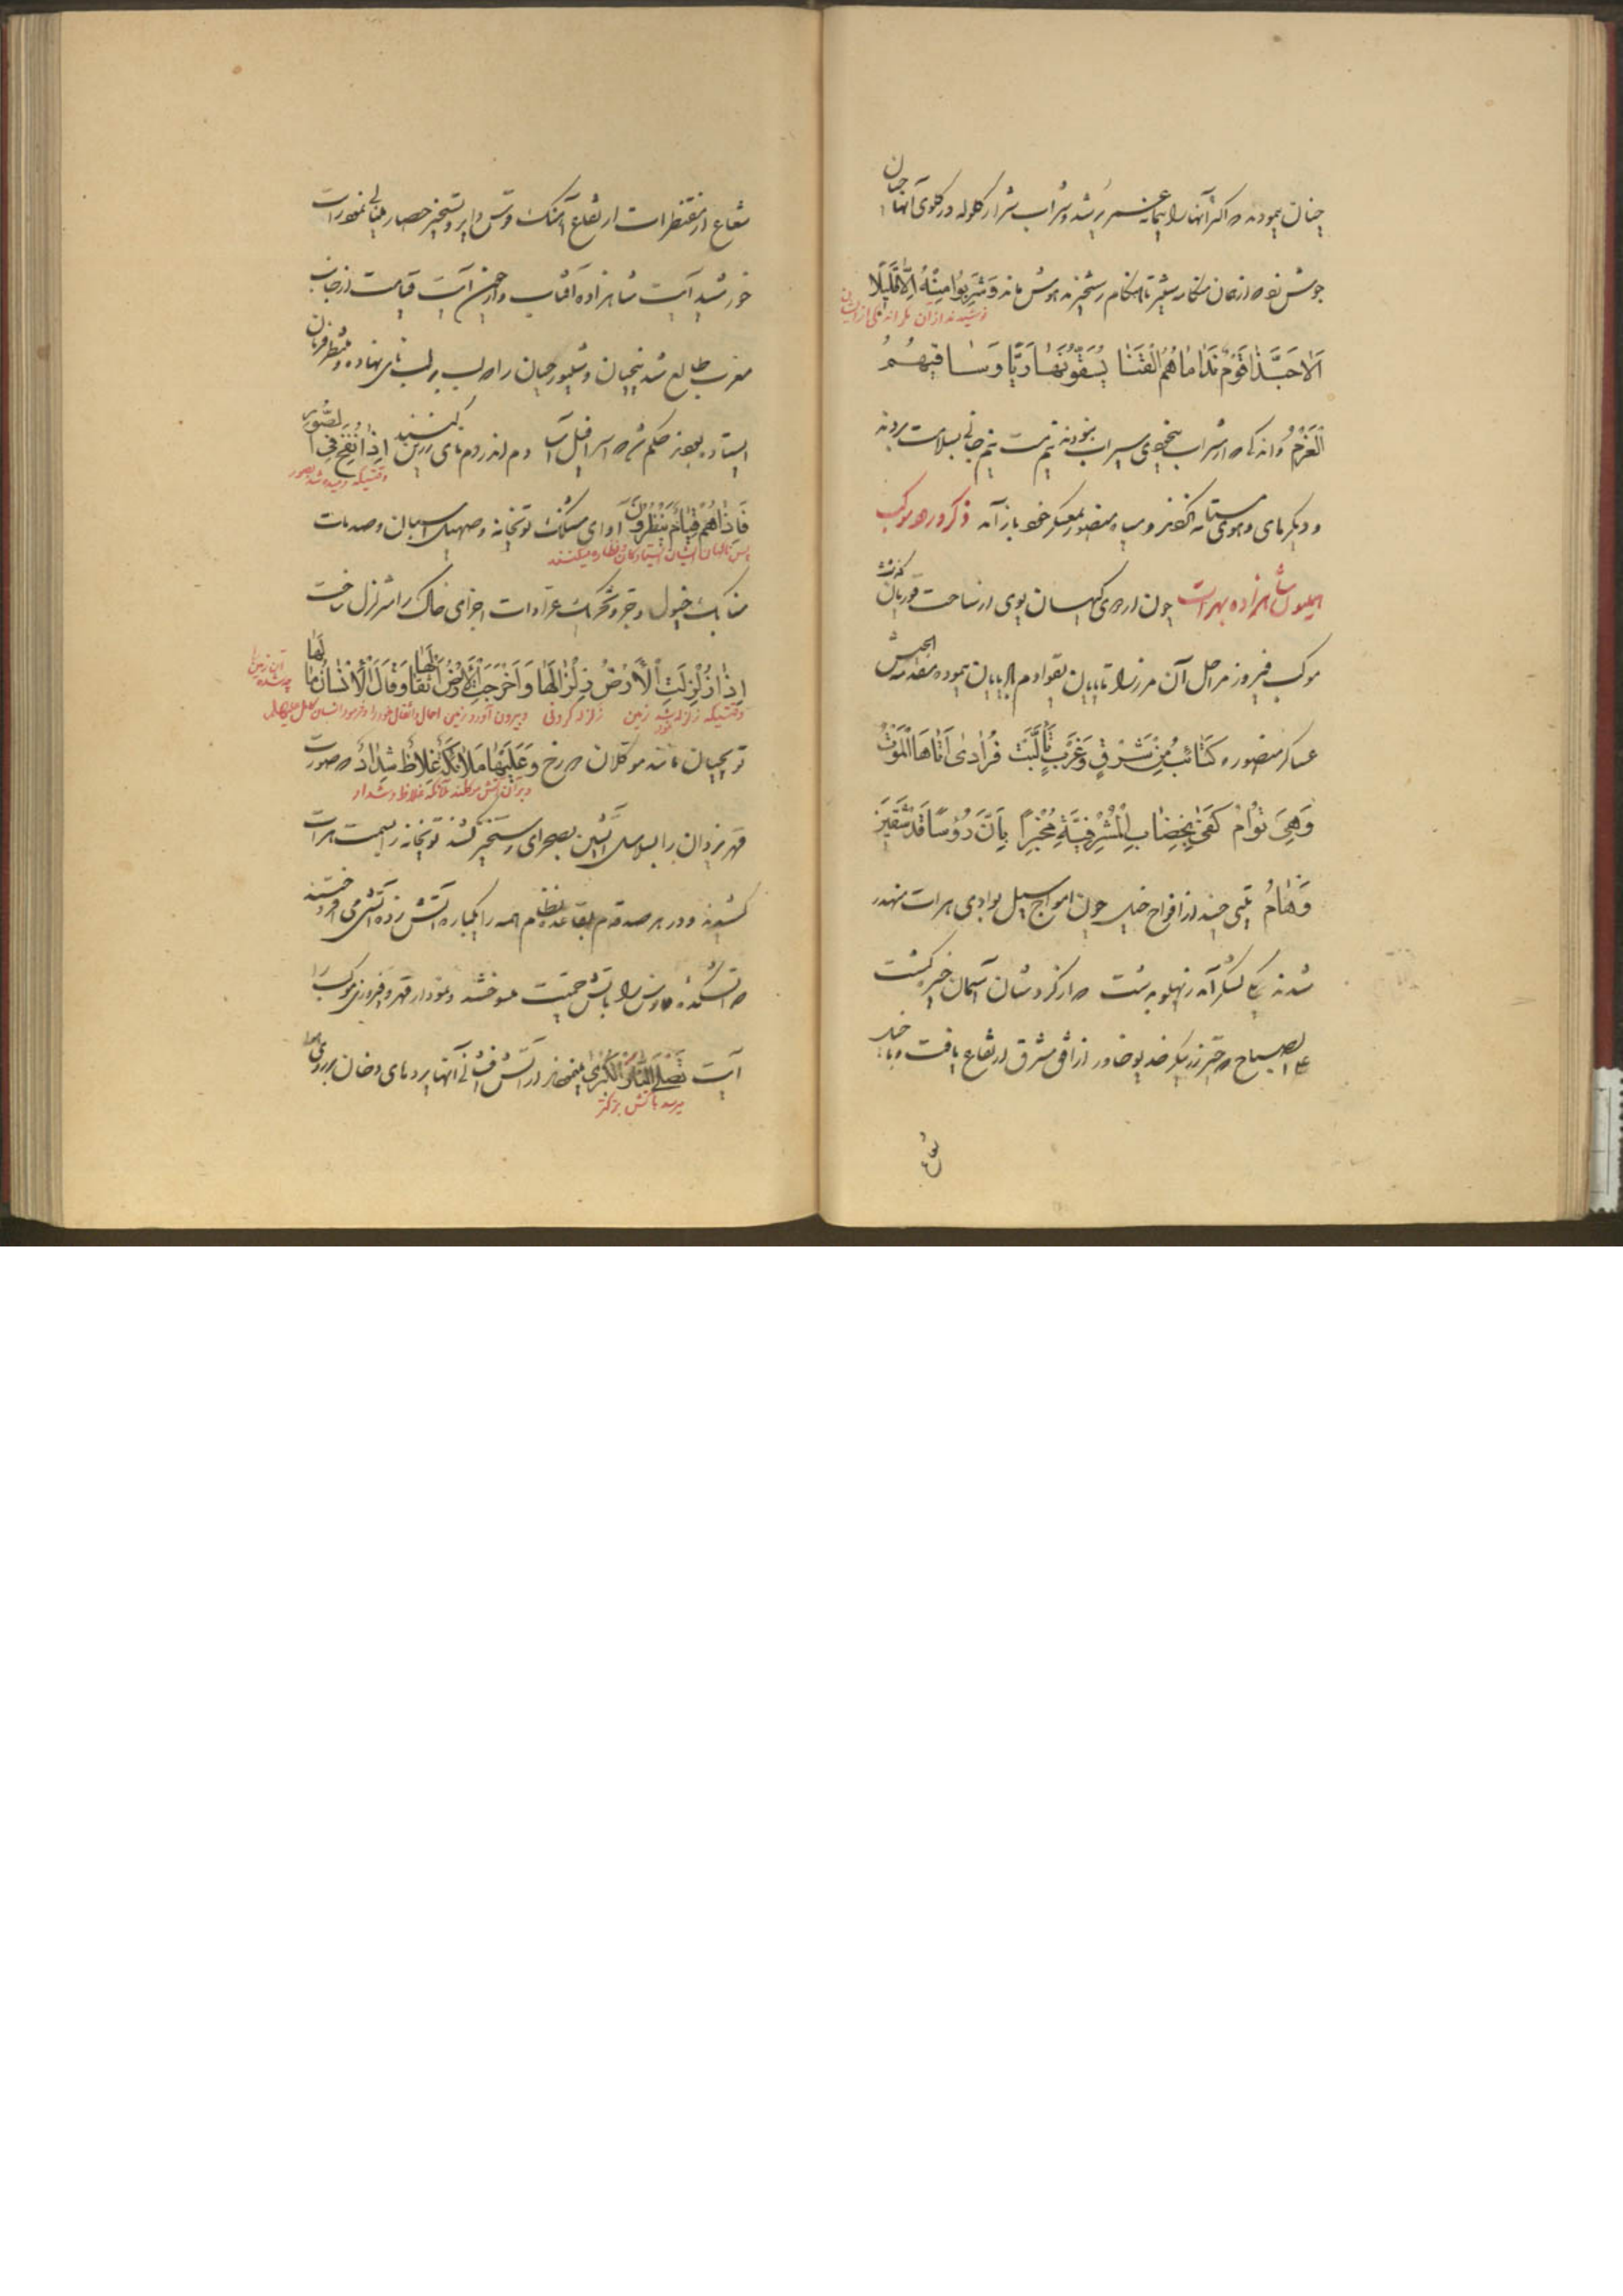 چنان نمودند که اکثر آنها را پیمانهٔ عمر پر شد و شراب شرار گلوله در گلوی آنها چنان
جوش نمود که از همان هنگام تا هنگام رستخیز مدهوش ماند وَشَرِبُوا مِنْهُ اِلَّا قَلِیلًا
نوشیدند از آن مگر اندکی از ایشان
اَلَا حَبَّذَا قَوْمٌ نَدَامَاهُمُ الْقَنَا یُسَقُّونَهَا رَیًّا وَسَاقِیهُمُ
الْعَزْمُ و اندکی که از شراب بیخودی سیراب نبودند نیم مست نیم جانی بسلامت بردند
و دیگر های و هوی مستانه نکردند و سپاه منصور بمعسکر خود باز آمد ذکر ورود موکب
همایون شاهزاده بهرات چون اردوی کیهان پوی از ساحت قوریان گذشت
موکب فیروز مراحل آن مرز را تا پایان بقوادم الریایان پیموده مقدمة الجیش
عساکر منصوره کَتَائِبُ مِنْ شَرْقٍ وَغَرْبٍ تَأَلَّبَتْ فُرَادٰی اَتَاهَا الْمَوْتُ
وَهِیَ تُوَامُ کَفٰی بِخِضَابِ الْمَشْرَفِیَّةِ مُخْبِرًا بِاَنَّ رُؤُسًا قَدْ شَقَیْنَ
وَهَامُ تنی چند از افواج خیل چون امواج سیل بوادی هرات منحدر
شدند یکی لشکر آمد ز پهلو بدشت که از گردشان آسمان خیره گشت
علی الصباح که چتر زرین پیکر خدیو خاور از افق مشرق ارتفاع یافت و با خیل
شعاع
شعاع از مقنطرات ارتفاع آهنگ قوس دایر و تسخیر حصار مینایی نمود رایت
خورشید آیت شاهزاده آفتاب و انجمن آیت قیامت از جانب
مغرب طالع شد پنجیان و شیپورچیان را که لب بر لب نای نهاده و منتظر فرمان
ایستاده بودند حکم شد که اسرافیل آسا دم اندر دم نای زرین کنند اِذَا نُفِخَ فِی الصُّورِ
وقتیکه دمیده شد بصور
فَاِذَاهُمْ قِیَامٌ یَنْظُرُونَ آوای شلیک توپخانه و صهیل اسبان و صدمات
پس ناگهان ایشان ایستادگان و نظاره میکنند
سنابک خیول و جر و تحریک عرادات اجزای خاک را متزلزل ساخت
اِذَا زُلْزِلَتِ الْاَرْضُ زِلْزَالَهَا وَاَخْرَجَتِ الْاَرْضُ اَثْقَالَهَا وَقَالَ الْاِنْسَانُ مَالَهَا
وقتیکه زلزله شد زمین زلزله کردنی و بیرون آورد زمین احمال و اثقال خود را و فرمود انسان کامل
این زمین را چه شده
توپچیان مانند موکلان دوزخ وَعَلَیْهَا مَلَائِکَةٌ غِلَاظٌ شِدَادٌ که صورت
و بر آن آتش موکلند ملائکه غلاظ و شداد
قهر یزدان را بسلاسل آتشین بصحرای رستخیز کشند توپخانه را بسمت هرات
کشیدند و در هر صد قدم بقاعده نظام همه را یکباره آتش زده آتشی می افروختند
که آتشکده فارس را بآتش حمیت میسوختند و نمودار قهر و فیروزی موکب را
آیت تَصْلَی النَّارَ الْکُبْرٰی میخواندند از آتش فشانی آنها پرده های دخان بر روی هوا
میرسد بآتش بزرگتر